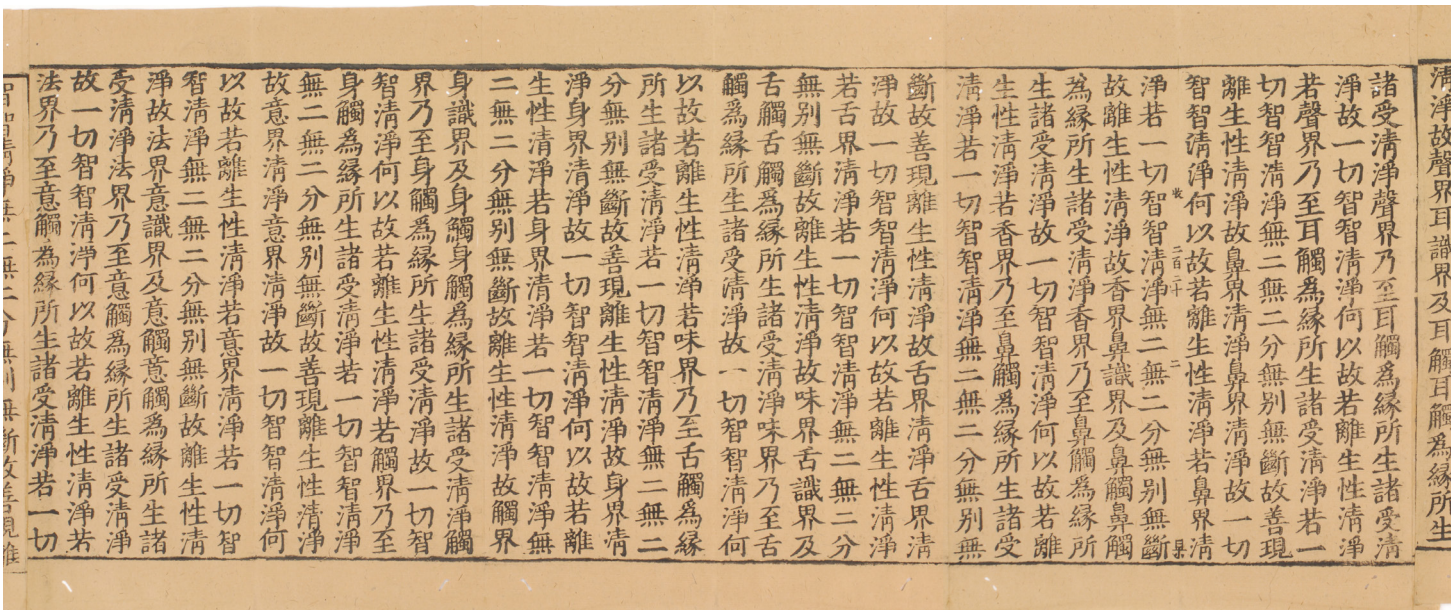 清淨故聲界耳識界及耳觸耳觸為緣所生
諸受清淨聲界乃至耳觸為緣所生諸受清
淨故一切智智清淨何以故若離生性清淨
若聲界乃至耳觸為緣所生諸受清淨若一
切智智清淨無二無二分無別無斷故善現
離生性清淨故鼻界清淨鼻界清淨故一切
智智清淨何以故若離生性清淨若鼻界清
收 二百二十 二 果
淨若一切智智清淨無二無二分無別無斷
故離生性清淨故香界鼻識界及鼻觸鼻觸
為緣所生諸受清淨香界乃至鼻觸為緣所
生諸受清淨故一切智智清淨何以故若離
生性清淨若香界乃至鼻觸為緣所生諸受
清淨若一切智智清淨無二無二分無別無
斷故善現離生性清淨故舌界清淨舌界清
淨故一切智智清淨何以故若離生性清淨
若舌界清淨若一切智智清淨無二無二分
無別無斷故離生性清淨故味界舌識界及
舌觸舌觸為緣所生諸受清淨味界乃至舌
觸為緣所生諸受清淨故一切智智清淨何
以故若離生性清淨若味界乃至舌觸為緣
所生諸受清淨若一切智智清淨無二無二
分無別無斷故善現離生性清淨故身界清
淨身界清淨故一切智智清淨何以故若離
生性清淨若身界清淨若一切智智清淨無
二無二分無別無斷故離生性清淨故觸界
身識界及身觸身觸為緣所生諸受清淨觸
界乃至身觸為緣所生諸受清淨故一切智
智清淨何以故若離生性清淨若觸界乃至
身觸為緣所生諸受清淨若一切智智清淨
無二無二分無別無斷故善現離生性清淨
故意界清淨意界清淨故一切智智清淨何
以故若離生性清淨若意界清淨若一切智
智清淨無二無二分無別無斷故離生性清
淨故法界意識界及意觸意觸為緣所生諸
受清淨法界乃至意觸為緣所生諸受清淨
故一切智智清淨何以故若離生性清淨若
法界乃至意觸為緣所生諸受清淨若一切
智智清淨無二無二分無別無斷故善現離